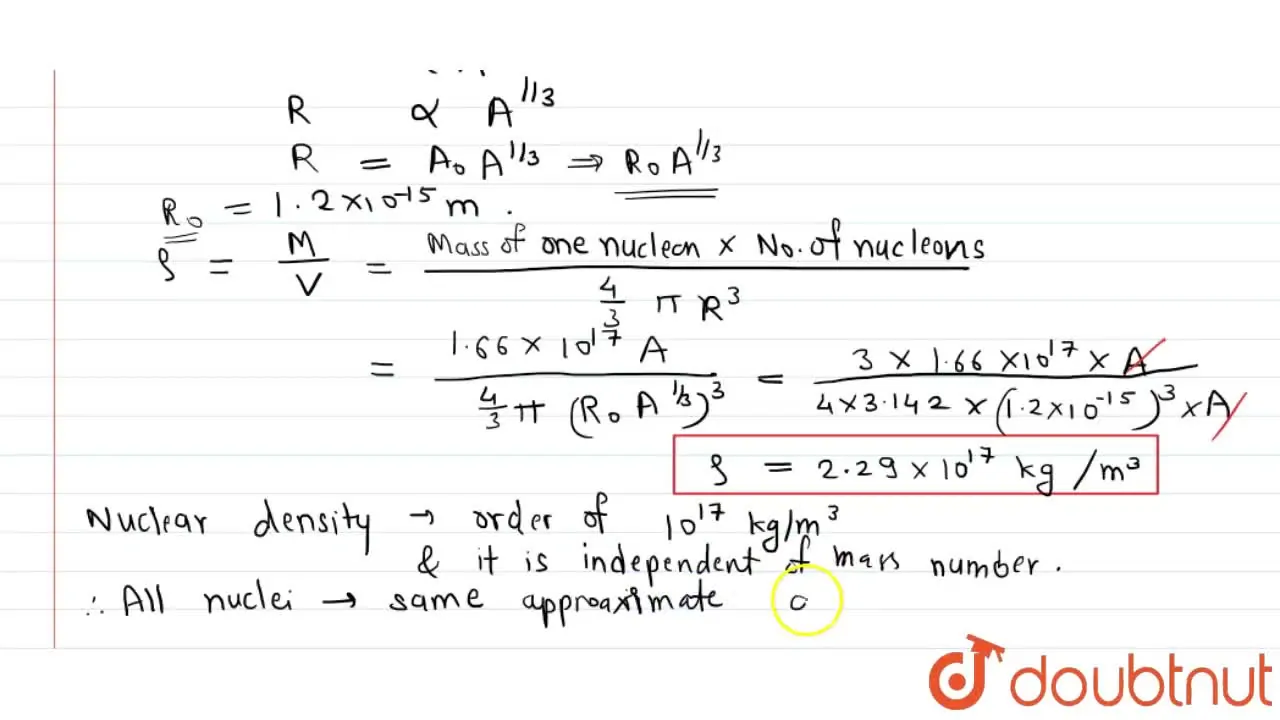 R α A^1/3
R = A₀ A^1/3 ⇒ R₀ A^1/3
R₀ = 1.2×10^-15 m .
ρ = M/V = Mass of one nucleon × No. of nucleons / 4/3 π R³
= 1.66 × 10^17 A / 4/3 π (R₀ A^1/3)³ = 3 × 1.66 ×10^17 × A / 4×3.142 × (1.2×10^-15)³ × A
ρ = 2.29 × 10^17 kg /m³
Nuclear density → order of 10^17 kg/m³
& it is independent of mass number.
∴ All nuclei → same approximate
doubtnut